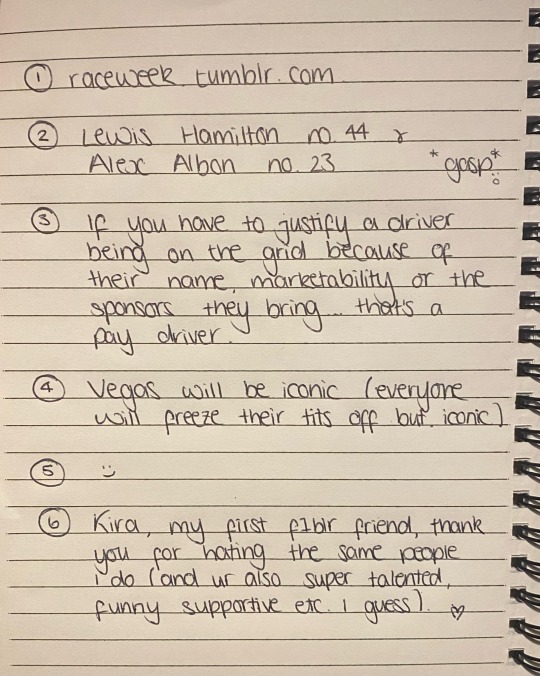 ① raceweek.tumblr.com
② Lewis Hamilton no. 44 &
Alex Albon no. 23 *gasp*
③ If you have to justify a driver
being on the grid because of
their name, marketability or the
sponsors they bring... that's a
pay driver.
④ Vegas will be iconic (everyone
will freeze their tits off but iconic)
⑤ :)
⑥ Kira, my first f1blr friend, thank
you for hating the same people
i do (and ur also super talented,
funny supportive etc. i guess). ♡